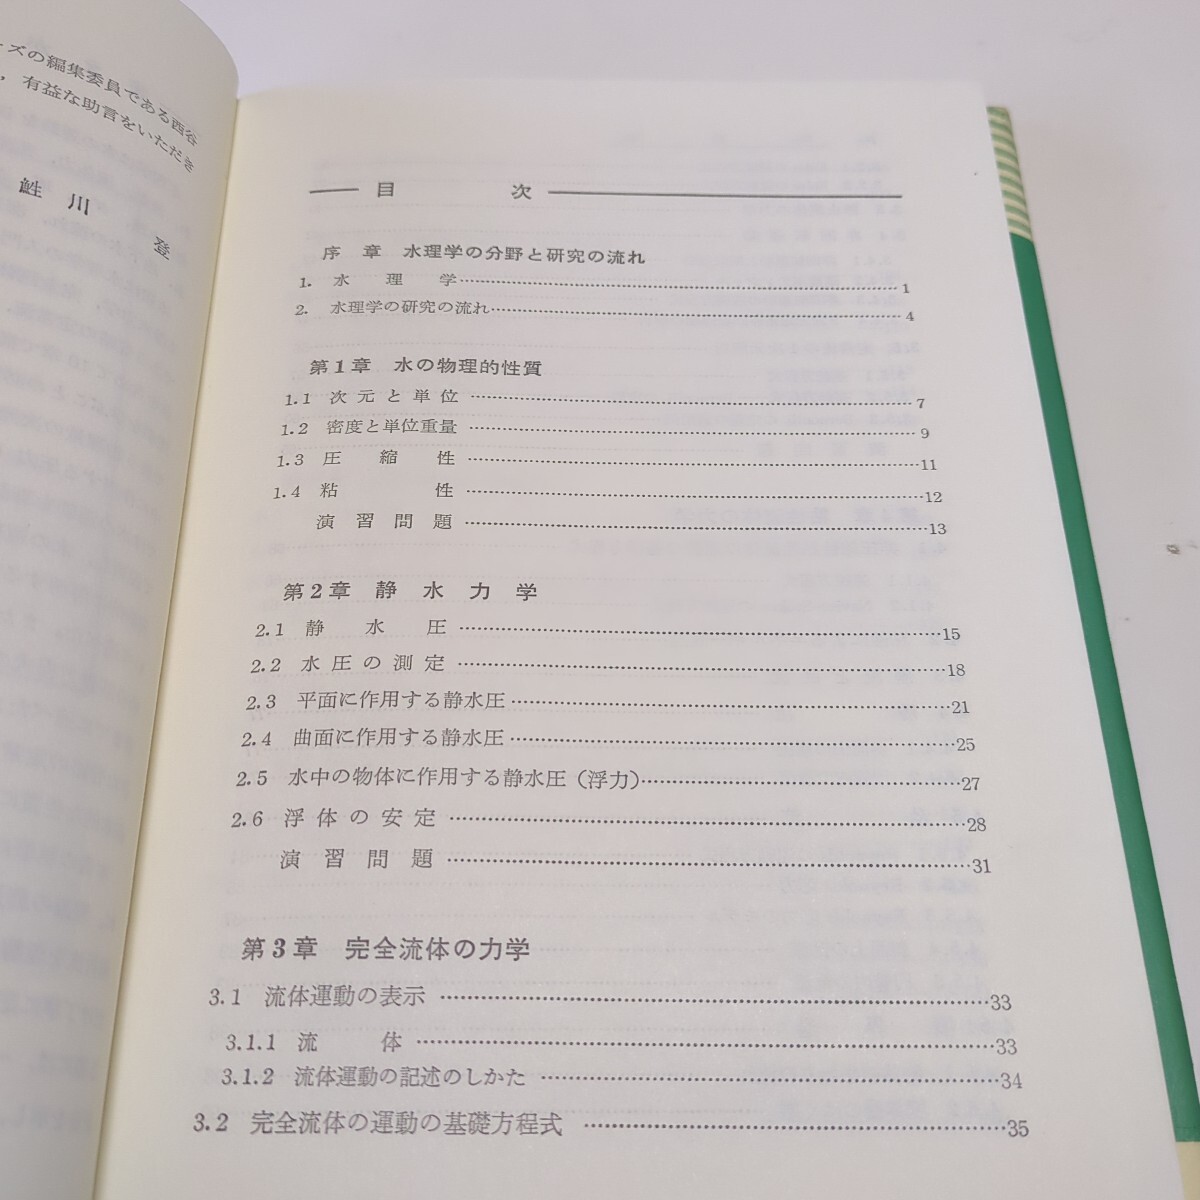 ズの編集委員である西谷
，有益な助言をいただき
鮏川 登
目 次
序章 水理学の分野と研究の流れ
1. 水理学……1
2. 水理学の研究の流れ……4
第1章 水の物理的性質
1.1 次元と単位……7
1.2 密度と単位重量……9
1.3 圧縮性……11
1.4 粘性……12
演習問題……13
第2章 静水力学
2.1 静水圧……15
2.2 水圧の測定……18
2.3 平面に作用する静水圧……21
2.4 曲面に作用する静水圧……25
2.5 水中の物体に作用する静水圧（浮力）……27
2.6 浮体の安定……28
演習問題……31
第3章 完全流体の力学
3.1 流体運動の表示……33
3.1.1 流体……33
3.1.2 流体運動の記述のしかた……34
3.2 完全流体の運動の基礎方程式……35